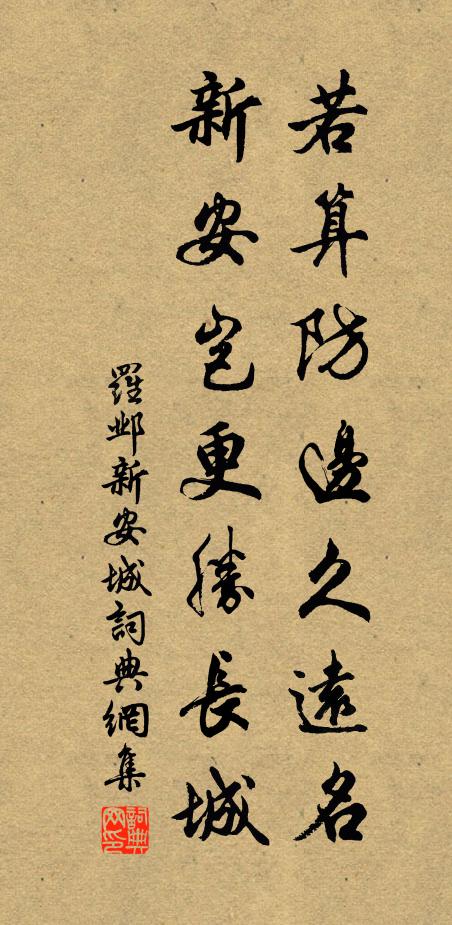 若算防邊久遠名
新安豈更勝長城
羅鄴新安城詞典網集
詞典网印